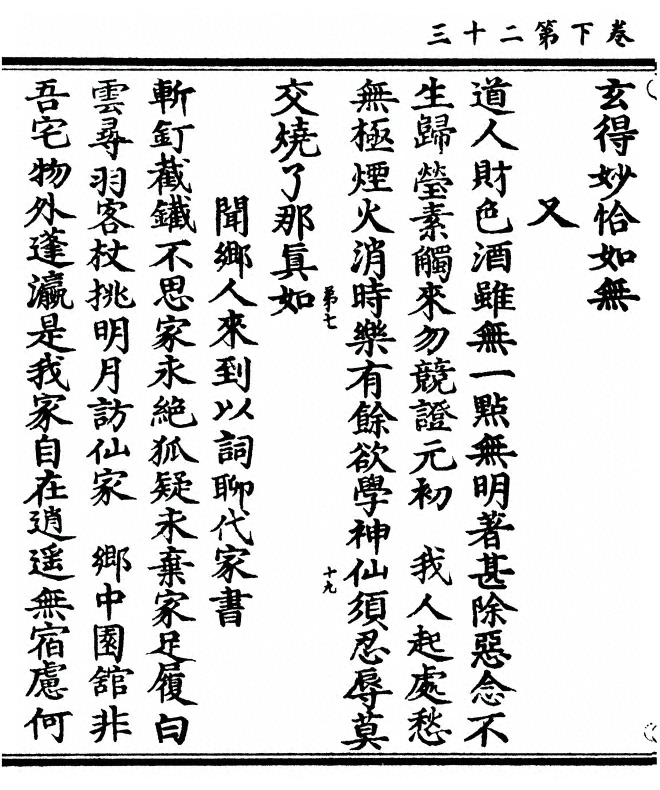 卷下第二十三
玄得妙恰如無
又
道人財色酒雖無一點無明著甚除惡念不
生歸瑩素觸來勿競證元初　我人起處愁
無極煙火消時樂有餘欲學神仙須忍辱莫
第七
十九
交燒了那眞如
聞鄉人來到以詞聊代家書
斬釘截鐵不思家永絕狐疑永棄家足履白
雲尋羽客杖挑明月訪仙家　鄉中園舘非
吾宅物外蓬瀛是我家自在逍遥無宿慮何